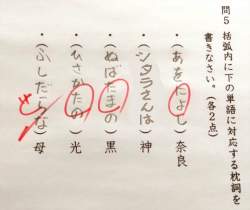 問5 括弧内に下の単語に対応する枕詞を
書きなさい。(各2点)
・(あをによし)奈良
・(シタラさんは)神
・(ぬばたまの)黒
・(ひさかたの)光
・(ふしだらな)母